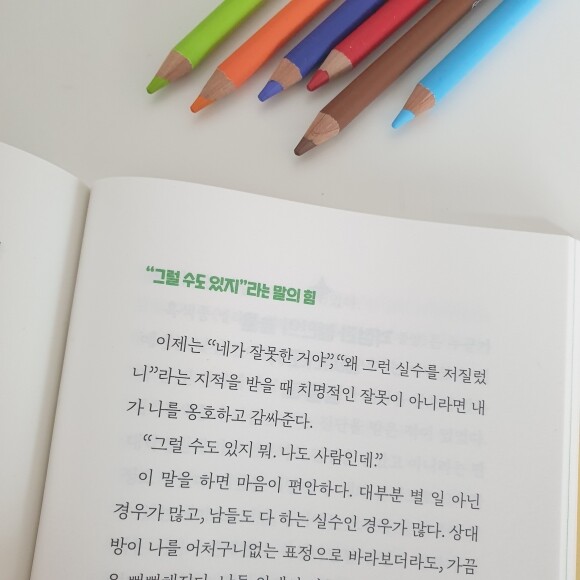 “그럴 수도 있지”라는 말의 힘
이제는 “네가 잘못한 거야”, “왜 그런 실수를 저질렀
니”라는 지적을 받을 때 치명적인 잘못이 아니라면 내
가 나를 옹호하고 감싸준다.
“그럴 수도 있지 뭐. 나도 사람인데.”
이 말을 하면 마음이 편안하다. 대부분 별 일 아닌
경우가 많고, 남들도 다 하는 실수인 경우가 많다. 상대
방이 나를 어처구니없는 표정으로 바라보더라도, 가끔